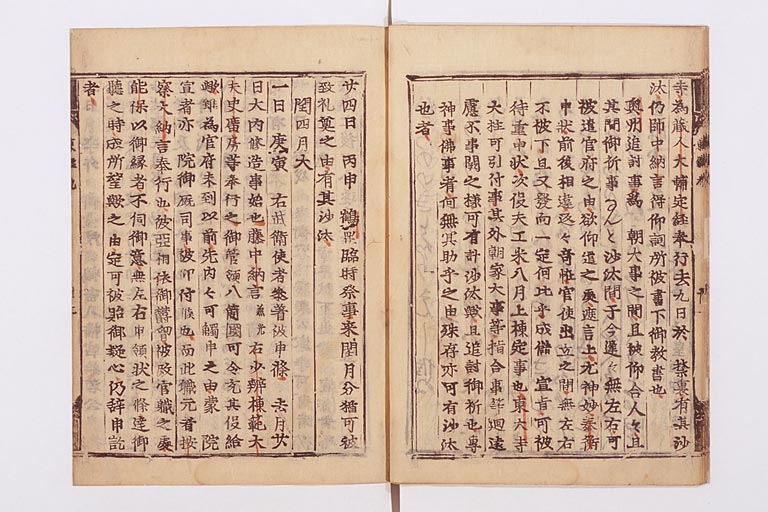 寺為蔵人大輔定経奉行去九日於 禁裏有其沙
汰仍師中納言得仰詞所被書下御教書也
奥州追討事為 朝大事之間且被仰合人々且
其間御祈事なんと沙汰間于今遅々無左右可
被遣官府之由欲仰遣之処應言上尤神妙奉
中状前後相違返々奇恠官使出立之間無左右
不被下且又發向一定何比乎成儲 宣旨可被
待重申状次俊大工来八月上棟定事也東大寺
大柱可引付事其外朝家大事等指合事許廻
應不事闕之様可有計沙汰歟且追討御祈也專
神事佛事者何無其助乎之由殊存亦可有沙汰
也者
廿四日 丙申 鶴岡臨時祭事来閏月分猶可被
致礼奠之由有其沙汰
閏四月大
一日 庚寅 右武衛使者参著被申條 去月廿
日大内修造事始也藤中納言 兼光 右少辨棟範大
夫史廣房等奉行之御管領八箇國可令充其役給
歟雖為官府未到以前先内々可觸申之由蒙 院
宣者亦 院御厩司事被仰付候也而此職元者按
察大納言奉行也彼亞相依御欝曾被服官職之處
能保以御縁者不伺御意無左右申領状之條達御
聽之時亟所望歟之由定可被貽御疑心仍辞申訖
者